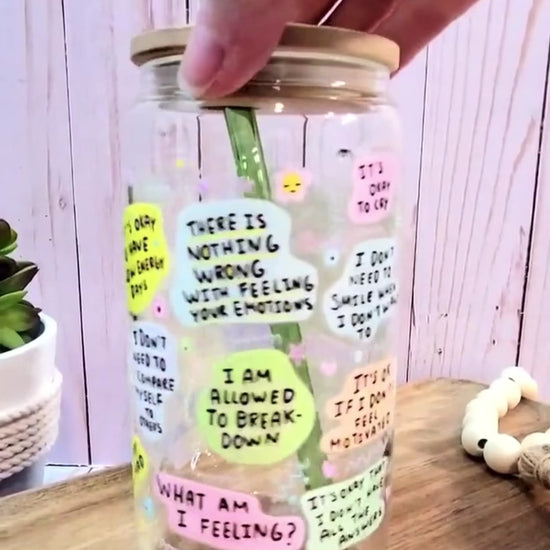 IT'S
OKAY
TO CRY
THERE IS
NOTHING
WRONG
WITH FEELING
YOUR EMOTIONS
OKAY
HAVE
ENERGY
DAYS
I DON'T
NEED TO
SMILE WHEN
I DON'T
TO
I DON'T
NEED TO
COMPARE
MYSELF
TO
OTHERS
I AM
ALLOWED
TO BREAK-
DOWN
IT'S OK
IF I DON'T
FEEL
MOTIVATED
WHAT AM
I FEELING?
IT'S OKAY THAT
I DON'T HAVE
ALL THE
ANSWERS